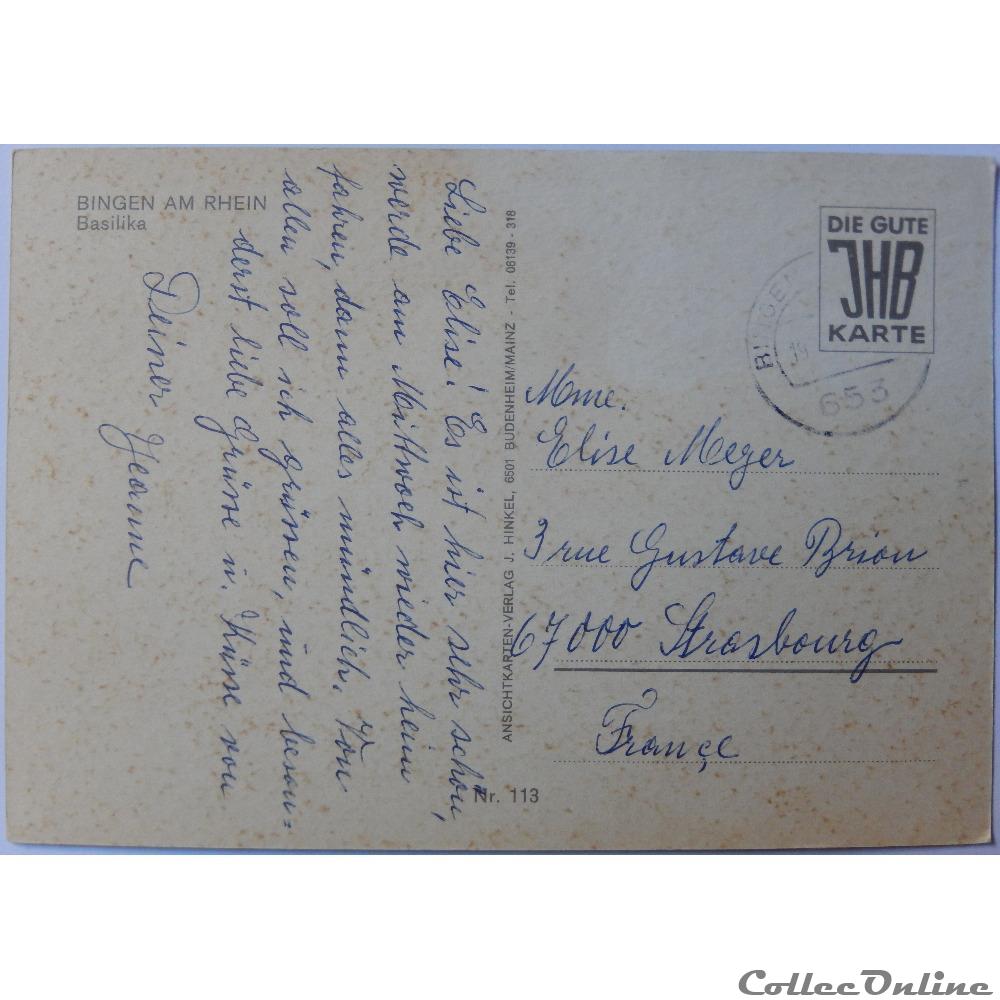 BINGEN AM RHEIN
Basilika
Liebe Elise! Es ist hier sehr schön,
werde am Mittwoch wieder heim
fahren, dann alles mündlich. Von
allen soll ich grüssen, und beson=
derst liebe Grüsse u. Küsse von
Deiner Jeanne
ANSICHTKARTEN-VERLAG J. HINKEL, 6501 BUDENHEIM/MAINZ - Tel. 06139 - 318
Nr. 113
DIE GUTE
JHB
KARTE
BINGEN
19
653
Mme.
Elise Meyer
3 rue Gustave Brion
67000 Strasbourg
France
CollecOnline